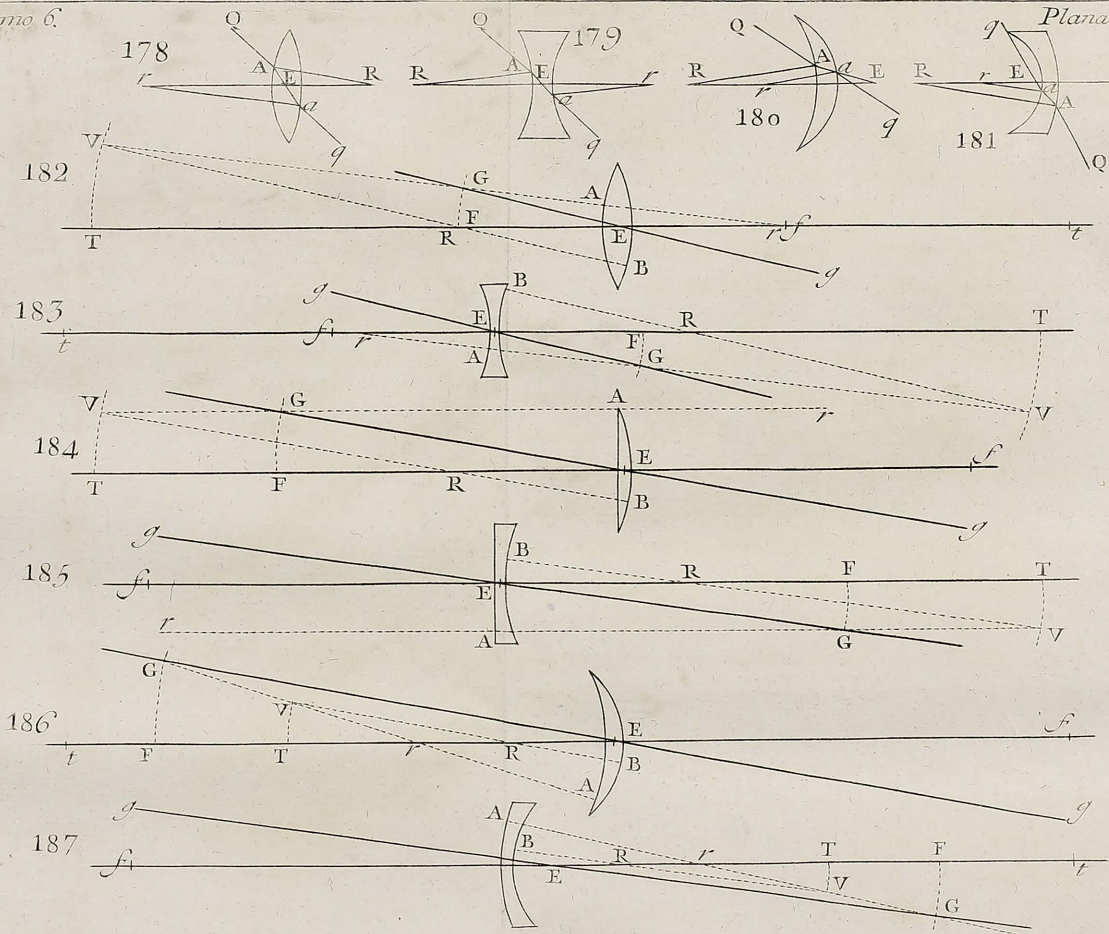 mo 6. Plana
178 Q A E R r a q
179 Q A E R r a q
180 Q A a E R r q
181 q R r E a A Q
182 V G A F T R E r f t g B
183 g B E R T f r F t A G V
184 V G A r E f T F R B g
185 g B R F T f E r A G V
186 G V E f t F T r R B A g
187 g A B R r T F f E V t G